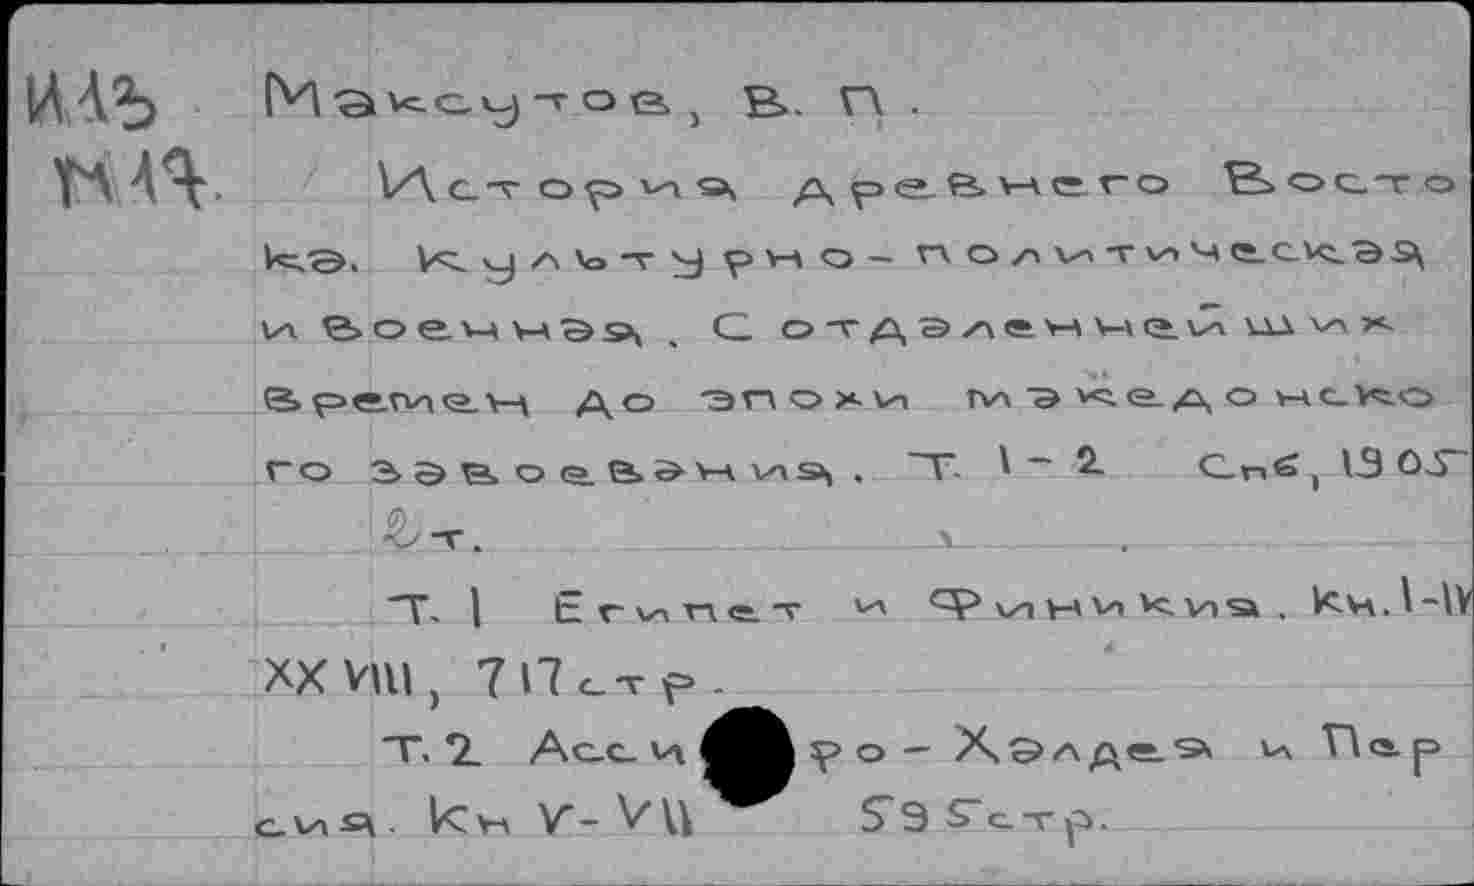 И13 Максутов, В. П.
М17. История древнего Восто
ка. Культурно-политическая
и военная. С отдаленнейших
времен до эпохи македонско
го завоевания. Т. 1-2 Спб, 1905
2 т.
Т. 1 Египет и Финикия. Кн. I-IV
XXVIII, 717 стр.
Т. 2 Асси ро-Халдея и Пер
сия. Кн V-VII 595 стр.